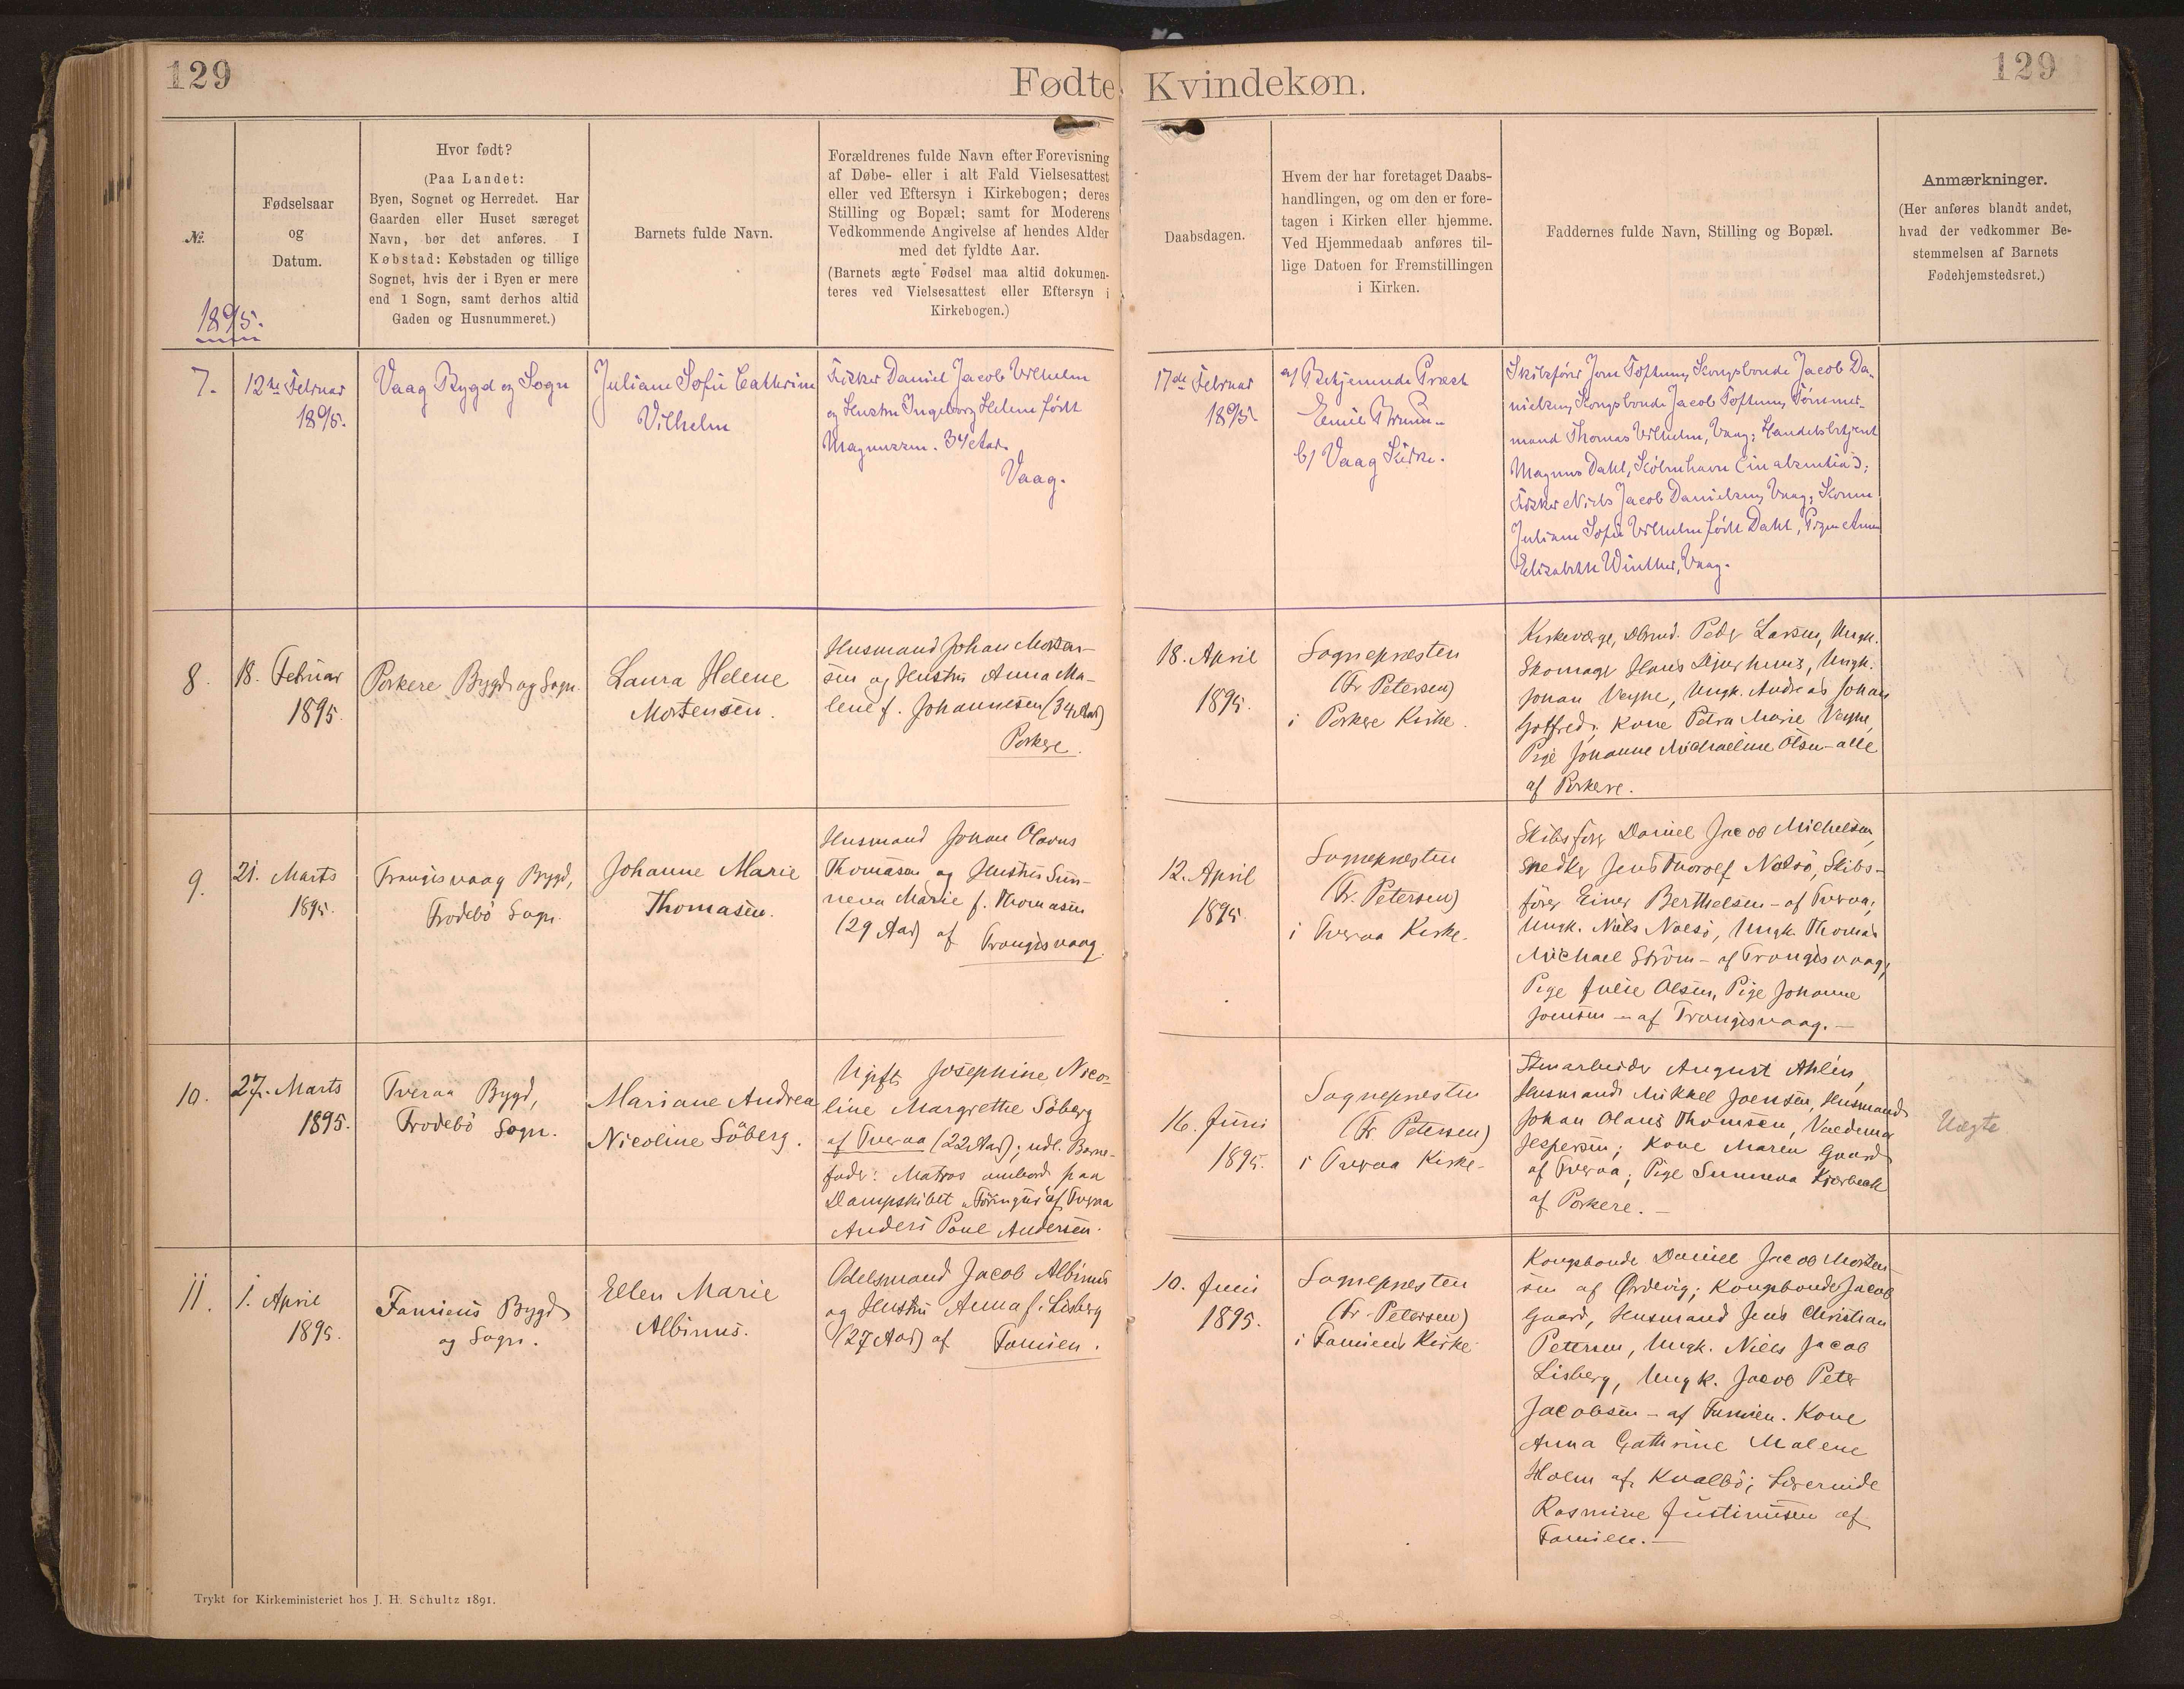 129
Fødte Kvindekøn.
129
№.
Fødselsaar
og
Datum.
Hvor født?
(Paa Landet:
Byen, Sognet og Herredet. Har
Gaarden eller Huset særeget
Navn, bør det anføres. I
Købstad: Købstaden og tillige
Sognet, hvis der i Byen er mere
end 1 Sogn, samt derhos altid
Gaden og Husnummeret.)
Barnets fulde Navn.
Forældrenes fulde Navn efter Forevisning
af Døbe- eller i alt Fald Vielsesattest
eller ved Eftersyn i Kirkebogen; deres
Stilling og Bopæl; samt for Moderens
Vedkommende Angivelse af hendes Alder
med det fyldte Aar.
(Barnets ægte Fødsel maa altid dokumen-
teres ved Vielsesattest eller Eftersyn i
Kirkebogen.)
Daabsdagen.
Hvem der har foretaget Daabs-
handlingen, og om den er fore-
tagen i Kirken eller hjemme.
Ved Hjemmedaab anføres til-
lige Datoen for Fremstillingen
i Kirken.
Faddernes fulde Navn, Stilling og Bopæl.
Anmærkninger.
(Her anføres blandt andet,
hvad der vedkommer Be-
stemmelsen af Barnets
Fødehjemstedsret.)
1895.
7.
12te Februar
1895.
Vaag Bygd og Sogn
Juliane Sofie Cathrine
Vilhelm
Fisker Daniel Jacob Vilhelm
og Hustru Ingeborg Helene født
Magnussen. 34 Aar.
Vaag.
17de Februar
1895.
a) Betjenende Præst
Emil Bruun.
b) Vaag Kirke.
Skibsfører Jon Toftum, Kongsbonde Jacob Da-
nielsen, Kongsbonde Jacob Toftum, Tømmer-
mand Thomas Vilhelm, Vaag; Handelsbetjent
Magnus Dahl, København (in absentia);
Fisker Niels Jacob Danielsen, Vaag; Konen
Juliane Sofie Vilhelm født Dahl, Pigen Anna
Elisabeth Winther, Vaag.
8.
18. Februar
1895.
Porkere Bygd og Sogn.
Laura Helene
Mortensen.
Husmand Johan Morten-
sen og Hustru Anna Ma-
lene f. Johannesen (34 Aar)
Porkere.
18. April
1895.
Sognepræsten
(Fr. Petersen)
i Porkere Kirke.
Kirkeværge, Dbrmd. Peder Larsen, Ungk.
Skomager Hans Djurhuus, Ungk.
Johan Veyhe, Ungk. Andreas Johan
Gotfred; Kone Petra Marie Veyhe,
Pige Johanne Michaeline Olsen - alle
af Porkere.
9.
21. Marts
1895.
Trangisvaag Bygd,
Frodebø Sogn.
Johanne Marie
Thomasen.
Husmand Johan Olavus
Thomasen og Hustru Sun-
neva Marie f. Thomasen
(29 Aar) af Trangisvaag.
12. April
1895.
Sognepræsten
(Fr. Petersen)
i Tveraa Kirke.
Skibsfører Daniel Jacob Michelsen,
Snedker Jens Thorolf Nolsø, Skibs-
fører Einer Berthelsen - af Tveraa;
Ungk. Niels Nolsø, Ungk. Thomas
Michael Strøm - af Trangisvaag;
Pige Julie Olsen, Pige Johanne
Joensen - af Trangisvaag. -
10.
27. Marts
1895.
Tveraa Bygd,
Frodebø Sogn.
Mariane Andrea
Nicoline Søberg.
Ugift Josephine Nico-
line Margrethe Søberg
af Tveraa (22 Aar); udl. Barne-
fader: Matros ombord paa
Dampskibet "Føringur" af Tveraa
Anders Poul Andersen.
16. Juni
1895.
Sognepræsten
(Fr. Petersen)
i Tveraa Kirke.
Stenarbeider August Ahlén,
Husmand Mikkel Joensen, Husmand
Johan Olaus Thomsen, Valdemar
Jespersen; Kone Maren Gaard
af Tveraa; Pige Sunneva Kjærbæk
af Porkere. -
Uægte
11.
1. April
1895.
Famiens Bygd
og Sogn.
Ellen Marie
Albinus.
Odelsmand Jacob Albinus
og Hustru Anna f. Lisberg
(27 Aar) af Famien.
10. Juni
1895.
Sognepræsten
(Fr. Petersen)
i Famiens Kirke.
Kongsbonde Daniel Jacob Morten-
sen af Ørdevig; Kongsbonde Jacob
Gaard, Husmand Jens Christian
Petersen, Ungk. Niels Jacob
Lisberg, Ungk. Jacob Peter
Jacobsen - af Famien. Kone
Anna Cathrine Malene
Holm af Kvalbø; Lærerinde
Rasmine Justinussen af
Famien. -
Trykt for Kirkeministeriet hos J. H. Schultz 1891.